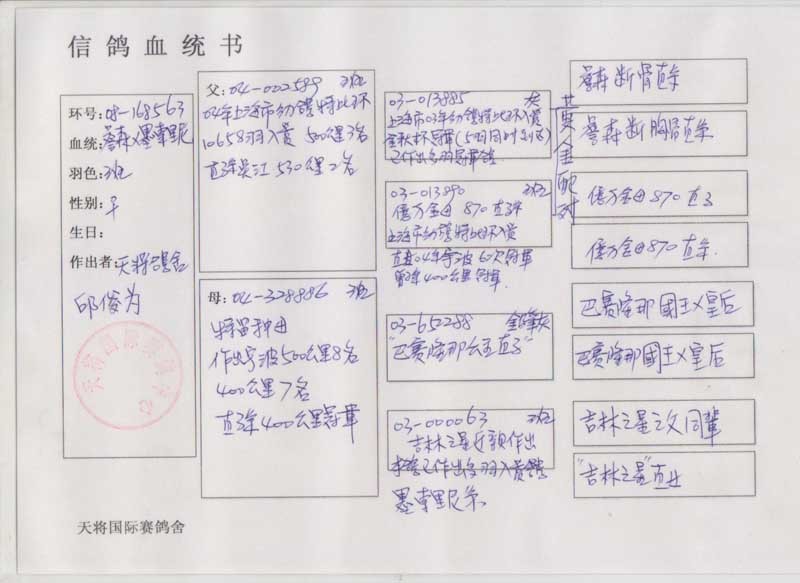 信鸽血统书
环号:08-168563
血统:詹森×墨索里尼
羽色:斑
性别:♀
生日:
作出者:天将鸽舍
邱俊为
天将国际赛鸽
父:04-022589 斑
04年上海市幼鸽特比环
10658羽入赏 500公里3名
直子吴江530公里2名
母:04-328886 斑
特留种母
作出宁波500公里8名
400公里7名
直孙400公里冠军
03-013885 灰
上海市03年幼鸽特比环入赏
金秋杯冠军
已作出多羽冠军鸽
黄金配对
03-013890 斑
億万金母870直子
上海市幼鸽特比环入赏
直女04年宁波60次冠军
400公里冠军
03-652288
"巴赛隆那公主直子"
03-000063 斑
吉林之星父亲作出
已作出多羽入赏鸽
墨索里尼系
詹森断骨直孙
詹森断胸骨直孙
億万金母870直子
億万金母870直孙
巴赛隆那國王×皇后
巴赛隆那國王×皇后
吉林之星之父同辈
"吉林之星"直女
天将国际赛鸽舍